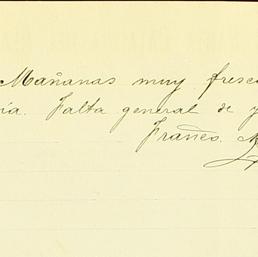 Mañanas muy fresc
ía. Falta general de y